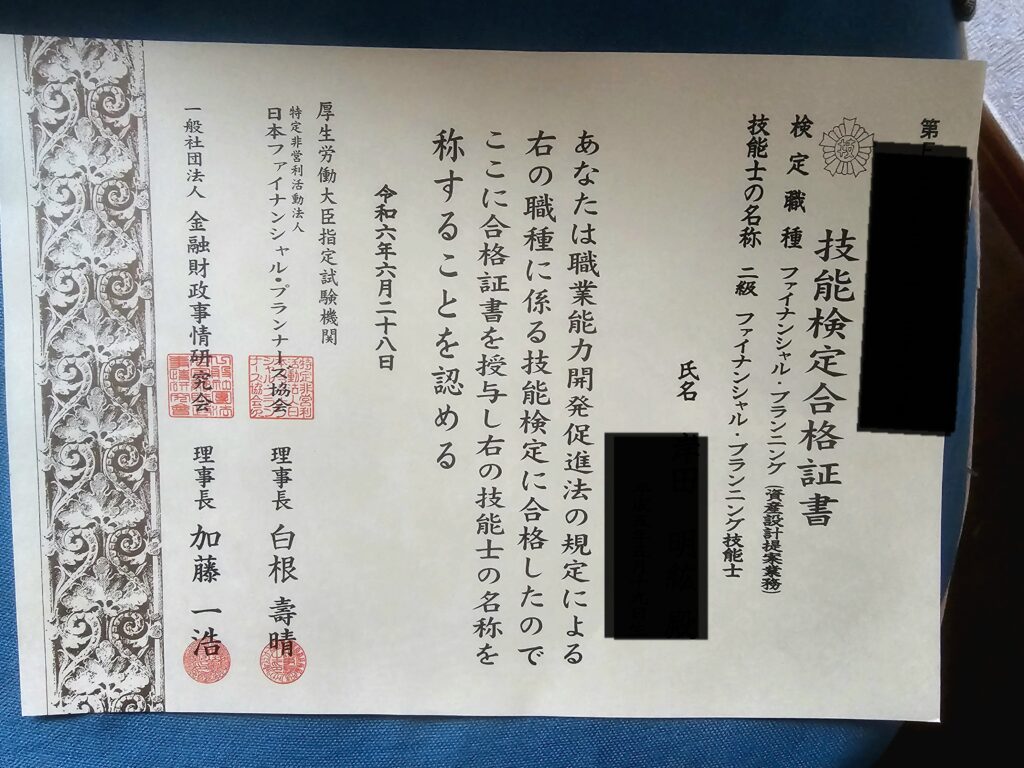 第
技能検定合格証書
検定職種 ファイナンシャル・プランニング (資産設計提案業務)
技能士の名称 二級 ファイナンシャル・プランニング技能士
氏名
あなたは職業能力開発促進法の規定による
右の職種に係る技能検定に合格したので
ここに合格証書を授与し右の技能士の名称を
称することを認める
令和六年六月二十八日
厚生労働大臣指定試験機関
特定非営利活動法人
日本ファイナンシャル・プランナーズ協会 理事長 白根 壽晴
一般社団法人 金融財政事情研究会 理事長 加藤 一浩